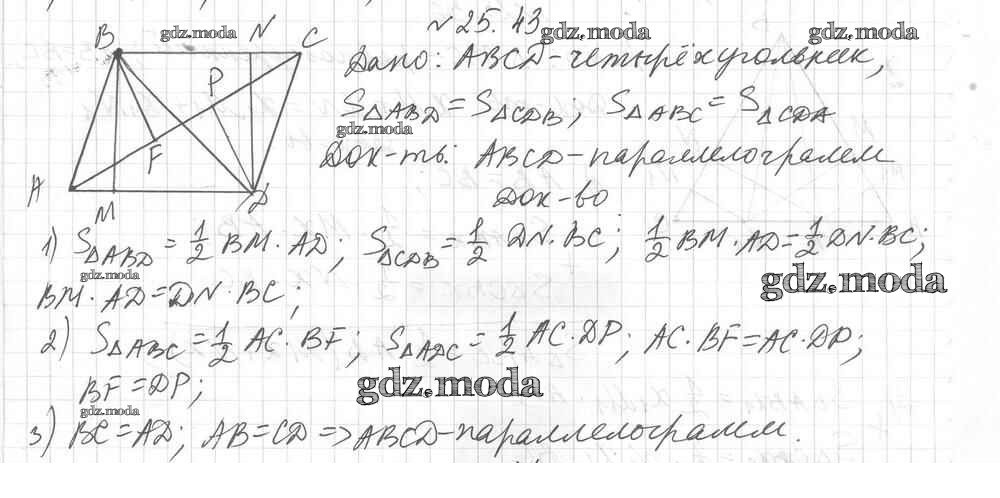 № 25.43
gdz.moda
gdz.moda
gdz.moda
B N C
P
F
A M D
Дано: ABCD-четырёхугольник,
S△ABD = S△CDB; S△ABC = S△CDA
gdz.moda
Док-ть: ABCD-параллелограмм
Док-во
1) S△ABD = 1/2 BM · AD; S△CDB = 1/2 DN · BC; 1/2 BM · AD = 1/2 DN · BC;
gdz.moda
gdz.moda
BM · AD = DN · BC;
2) S△ABC = 1/2 AC · BF; S△ADC = 1/2 AC · DP; AC · BF = AC · DP;
BF = DP;
gdz.moda
gdz.moda
3) BC = AD; AB = CD => ABCD-параллелограмм.